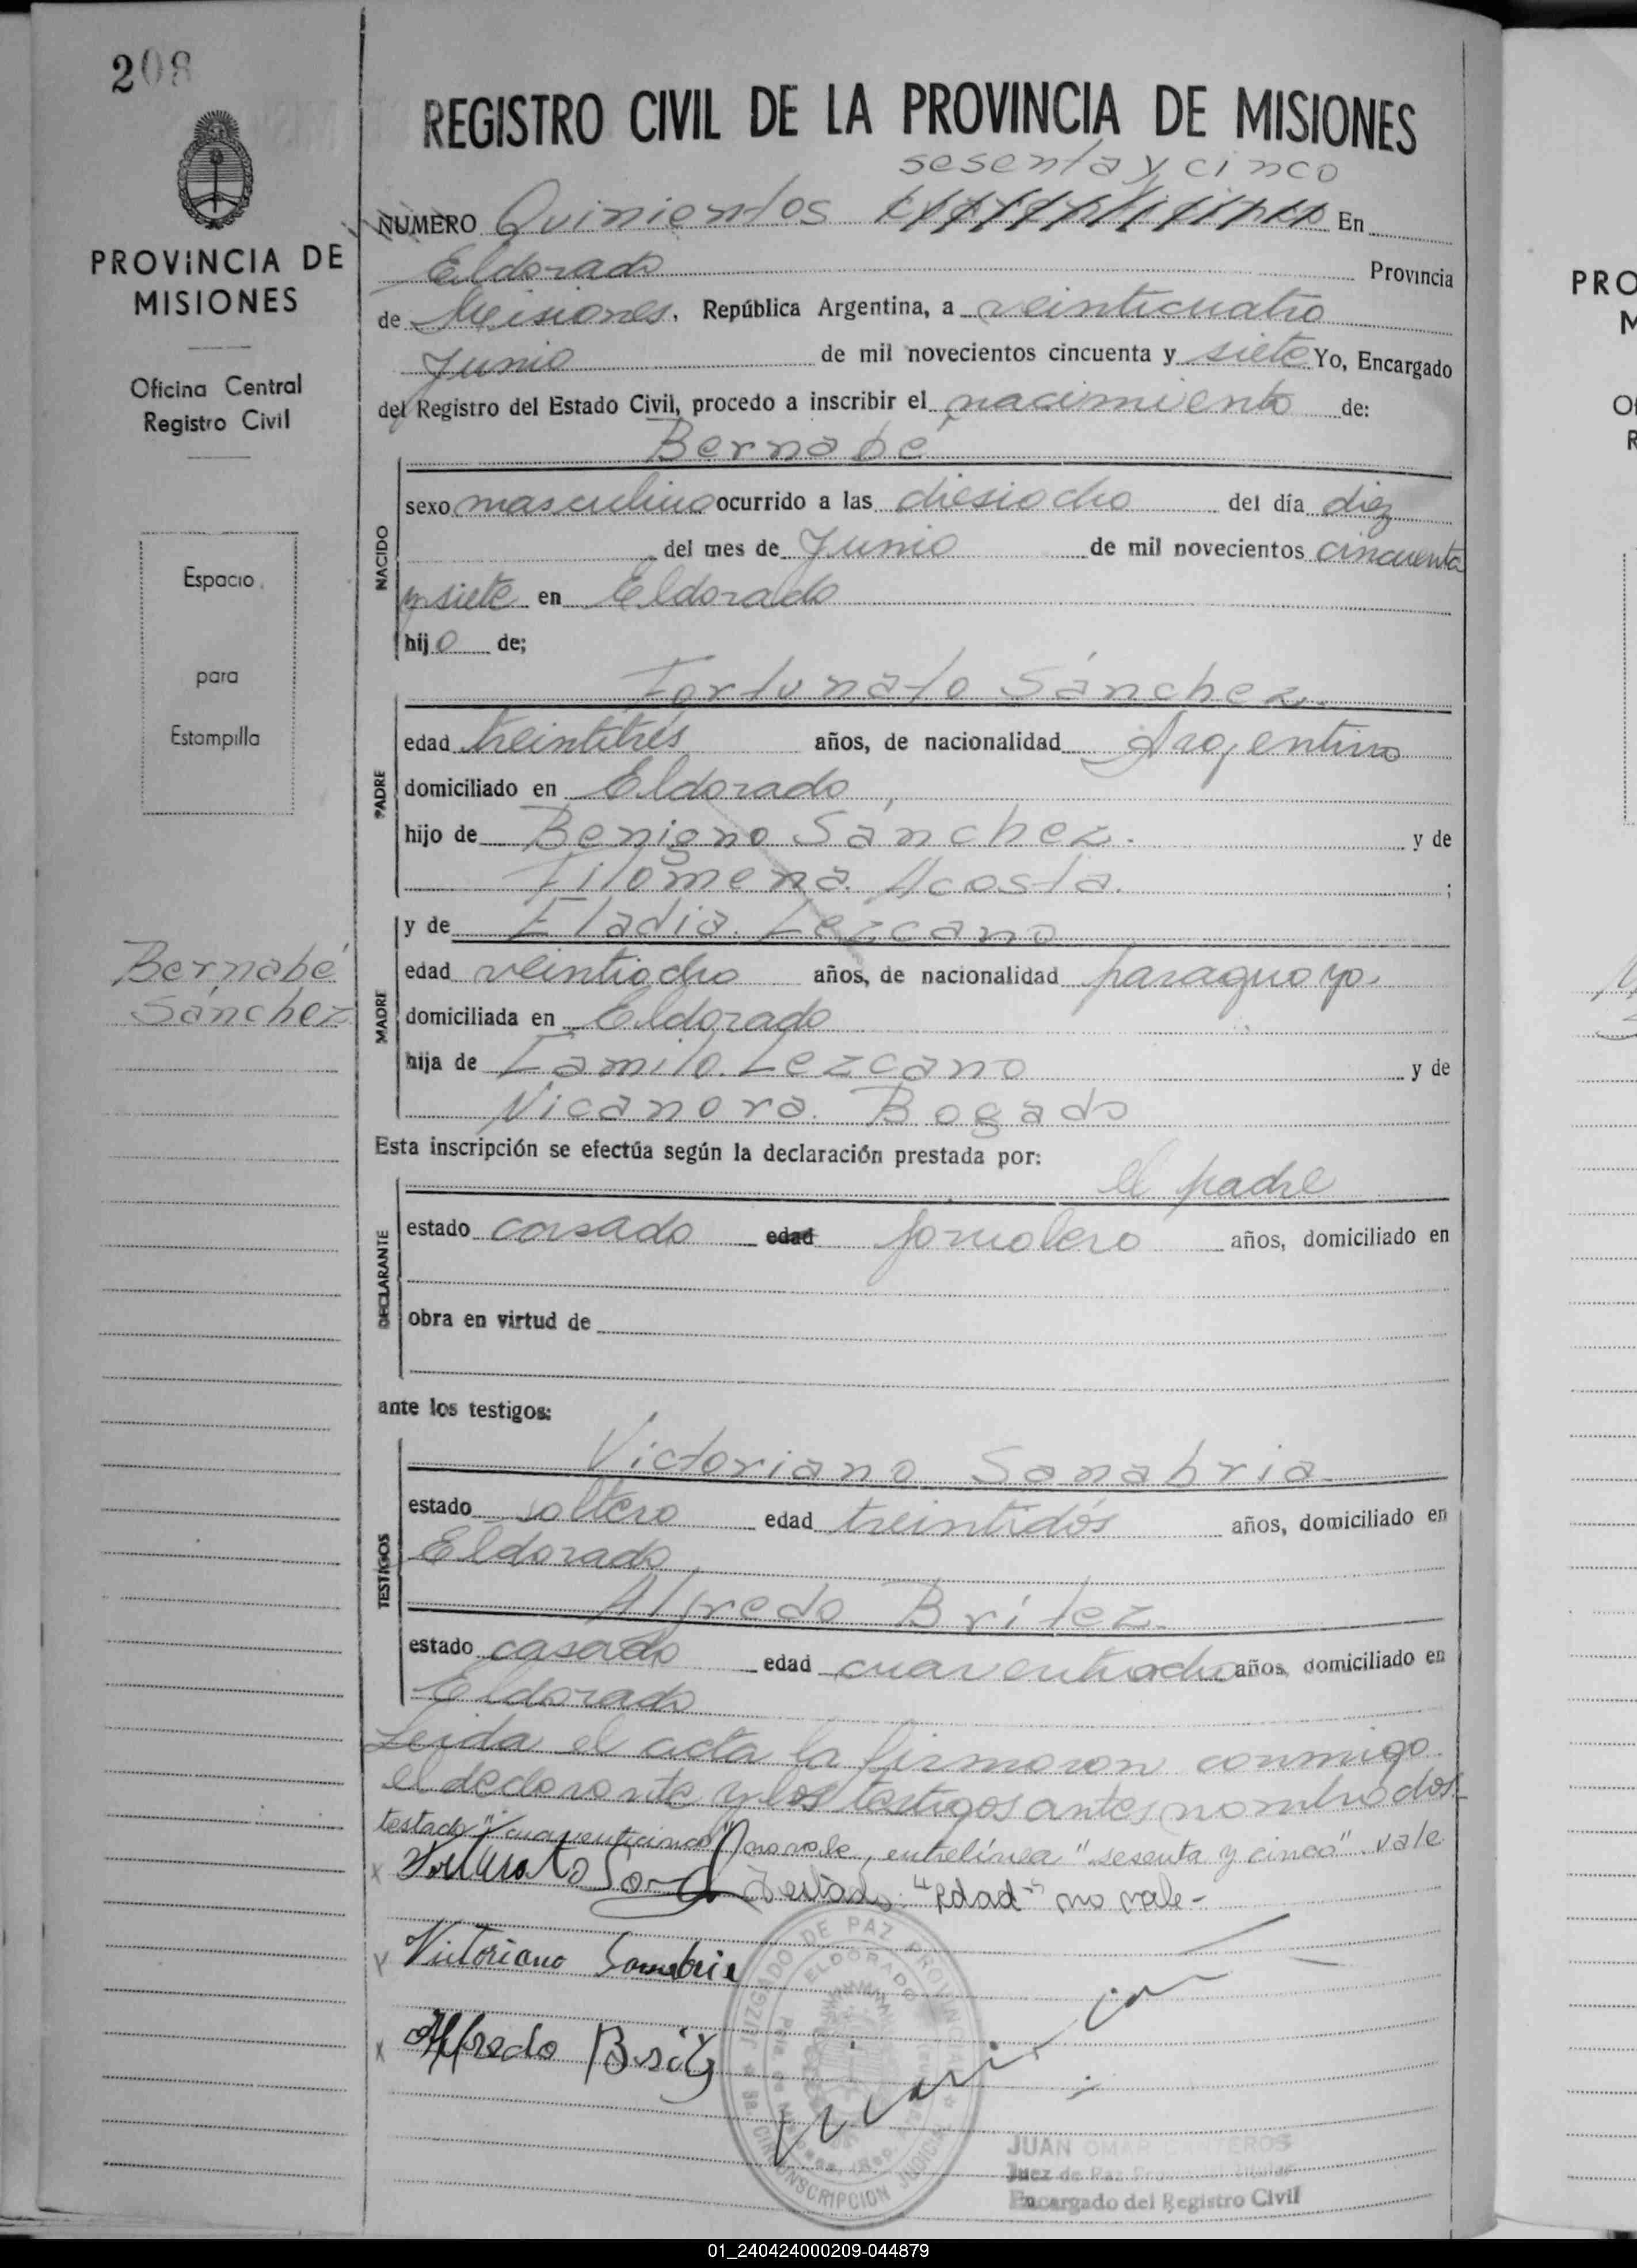 208
PROVINCIA DE
MISIONES
Oficina Central
Registro Civil
Espacio
para
Estampilla
Bernabé
Sánchez
REGISTRO CIVIL DE LA PROVINCIA DE MISIONES
sesenta y cinco
NUMERO Quinientos En
Eldorado Provincia
de Misiones, República Argentina, a veinticuatro
Junio de mil novecientos cincuenta y siete Yo, Encargado
del Registro del Estado Civil, procedo a inscribir el nacimiento de:
Bernabé
NACIDO
sexo masculino ocurrido a las diesiocho del día diez
del mes de Junio de mil novecientos cincuenta
y siete en Eldorado
hijo de;
Fortunato Sánchez.
PADRE
edad treintitrés años, de nacionalidad Argentino
domiciliado en Eldorado
hijo de Benigno Sánchez. y de
Filomena Acosta. ;
MADRE
y de Eladia Lezcano
edad veintiocho años, de nacionalidad paraguaya.
domiciliada en Eldorado
hija de Camilo Lezcano y de
Nicanora Bogado
Esta inscripción se efectúa según la declaración prestada por:
DECLARANTE
el padre
estado casado edad jornalero años, domiciliado en
obra en virtud de
ante los testigos:
TESTIGOS
Victoriano Sanabria.
estado soltero edad treintidós años, domiciliado en
Eldorado
Alfredo Brítez.
estado casado edad cuarentiocho años, domiciliado en
Eldorado
Leida el acta la firmaron conmigo
el declarante y los testigos antes nombrados.
testado "cuarenticinco" no vale, entrelínea "sesenta y cinco" vale
Testado: "edad" no vale-
Fortunato
Victoriano Sanabria
Alfredo
JUZGADO DE PAZ PROVINCIAL
ELDORADO
CIRCUNSCRIPCION JUDICIAL
JUAN OMAR CANTEROS
Juez de Paz
Encargado del Registro Civil
PRO
M
01_240424000209-044879